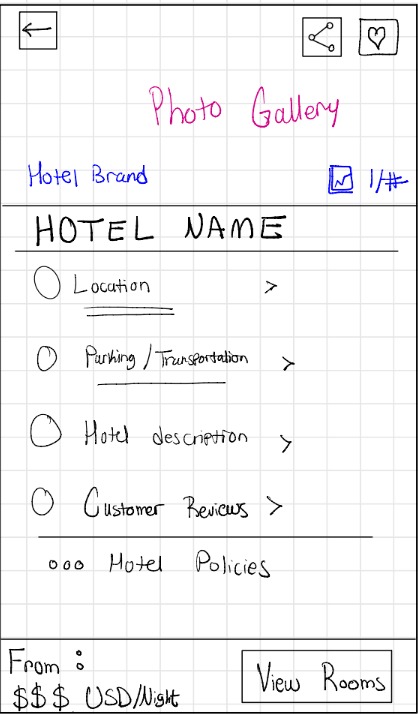 Photo Gallery
Hotel Brand 1/#
HOTEL NAME
Location >
Parking / Transportation >
Hotel description >
Customer Reviews >
ooo Hotel Policies
From :
$$$ USD/Night
View Rooms